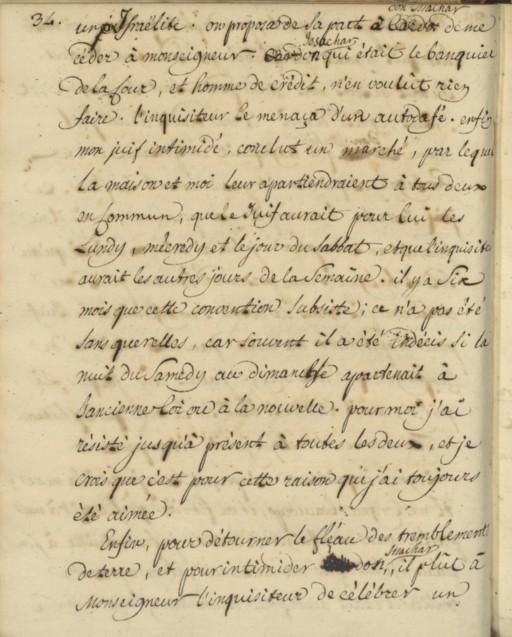 34.
un Israélite. on proposa de sa part à don Issachar de me
céder à monseigneur. Issachar qui était le banquier
de la Cour, et homme de crédit, n'en voulût rien
faire. l'inquisiteur le menaça d'un autodafé. enfin
mon juif intimidé, conclut un marché, par lequel
la maison et moi leur apartiendraient à tous deux
en Commun, que le Juif aurait pour lui les
Lundy, mécredy et le jour du sabbat, et que l'inquisiteur
aurait les autres jours de la Semaine. il y a Six
mois que cette convention subsiste; ce n'a pas été
sans querelles, car souvent il a été indécis si la
nuit du Samedy au dimanche apartenait à
l'ancienne loi ou à la nouvelle. pour moi j'ai
résisté jusqu'à présent à toutes les deux, et je
crois que c'est pour cette raison que j'ai toujours
été aimée.
Enfin, pour détourner le fléau des tremblements
de terre, et pour intimider don Issachar, il plût à
Monseigneur l'inquisiteur de célébrer un